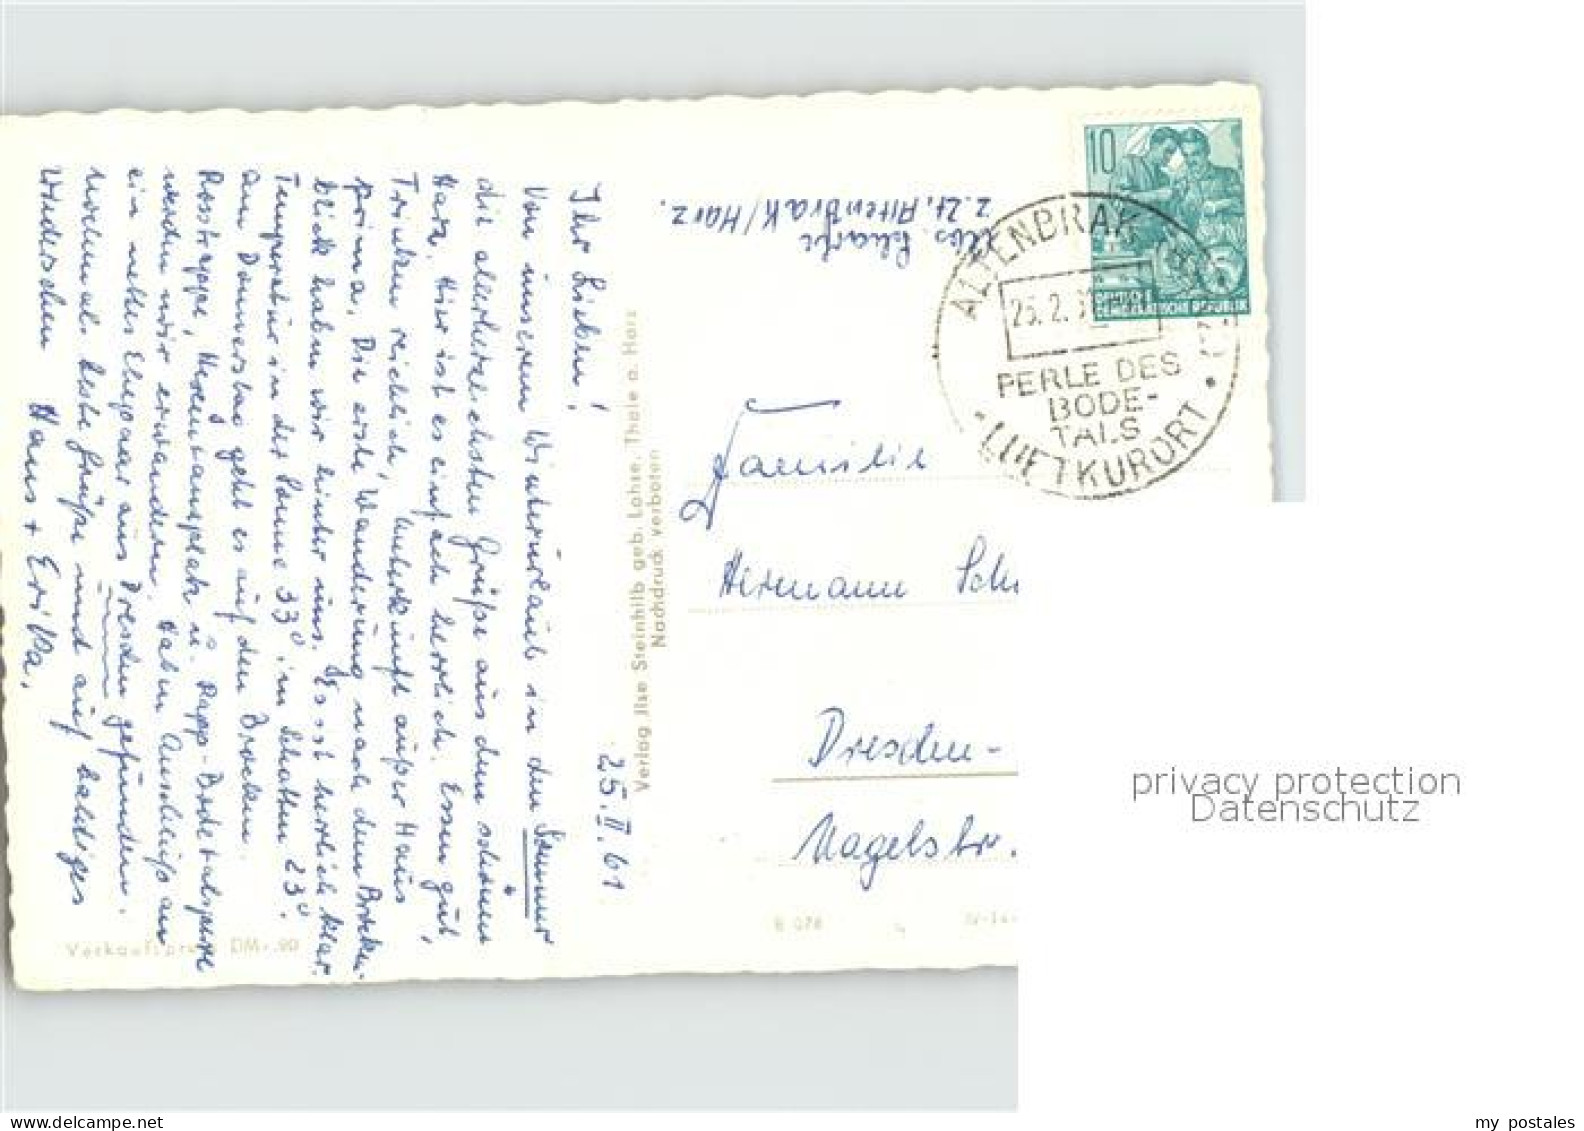 Ihr Lieben! 25.II.61
Von unserem Winterurlaub in dem Sommer
die allerherzlichsten Grüße aus dem schönen
Harz. Hier ist es einfach herrlich. Essen gut,
Trinken reichlich, Unterkunft außer Haus
prima. Die erste Wanderung nach dem Brocken-
blick haben wir hinter uns. Es ist herrlich klar.
Temperatur in der Sonne 33° im Schatten 23°.
Am Donnerstag geht es auf den Brocken.
Rosstrappe, Hexentanzplatz u. Rapp-Bodetalsperre
werden wir erwandern. Haben Anschluß an
ein nettes Ehepaar aus Dresden gefunden.
Nochmals beste Grüße und auf baldiges
Wiedersehen Hans + Erika.
Verkaufspreis DM -.90
Verlag Ilse Steinhilb geb. Lohse, Thale a. Harz
Nachdruck verboten
Abs.
z.Zt. Altenbrak/Harz.
10
DEUTSCHE
DEMOKRATISCHE REPUBLIK
ALTENBRAK
25.2.61
PERLE DES
BODE-
TALS
LUFTKURORT
Familie
Hermann Sch
Dresden-
Nagelstr.
B 078
IV-14-
privacy protection
Datenschutz
my postales